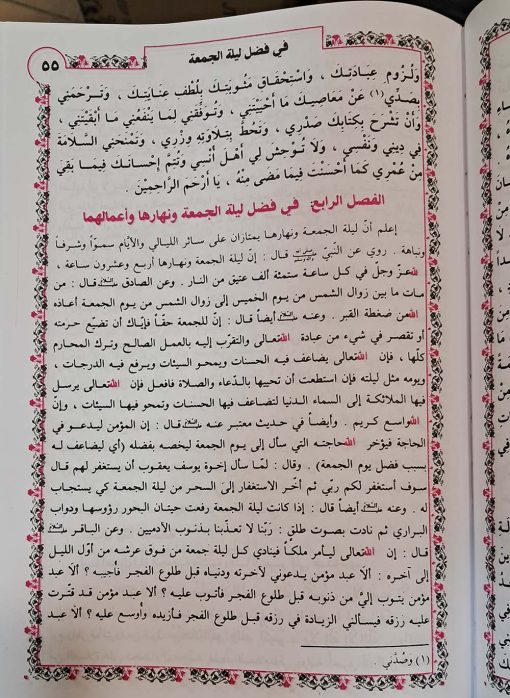 في فضل ليلة الجمعة
٥٥
وَلُزُومِ عِبَادَتِكَ ، وَاسْتِحْقَاقِ مَثُوبَتِكَ بِلُطْفِ عِنَايَتِكَ ، وَتَرْحَمَنِي
بِصَدِّي(١) عَنْ مَعَاصِيكَ مَا أَحْيَيْتَنِي ، وَتُوَفِّقَنِي لِمَا يَنْفَعُنِي مَا أَبْقَيْتَنِي ،
وَأَنْ تَشْرَحَ بِكِتَابِكَ صَدْرِي ، وَتَحُطَّ بِتِلَاوَتِهِ وِزْرِي ، وَتَمْنَحَنِي السَّلَامَةَ
فِي دِينِي وَنَفْسِي ، وَلَا تُوحِشَ لِي أَهْلَ أُنْسِي وَتُتِمَّ إِحْسَانَكَ فِيمَا بَقِيَ
مِنْ عُمْرِي كَمَا أَحْسَنْتَ فِيمَا مَضَى مِنْهُ ، يَا أَرْحَمَ الرَّاحِمِينَ .
الفصل الرابع: في فضل ليلة الجمعة ونهارها وأعمالهما
إعلم أنّ ليلة الجمعة ونهارها يمتازان على سائر الليالي والأيّام سموّاً وشرفاً
ونباهة . روي عن النبيّ قال : إنّ ليلة الجمعة ونهارها أربع وعشرون ساعة ،
لله عزّ وجلّ في كل ساعة ستمئة ألف عتيق من النار . وعن الصادق قال : من
مات ما بين زوال الشمس من يوم الخميس إلى زوال الشمس من يوم الجمعة أعاذه
الله من ضغطة القبر . وعنه أيضاً قال : إنّ للجمعة حقّاً فإيّاك أن تضيّع حرمته
أو تقصر في شيء من عبادة الله تعالى والتقرّب إليه بالعمل الصالح وترك المحارم
كلّها ، فإن الله تعالى يضاعف فيه الحسنات ويمحو السيئات ويرفع فيه الدرجات ،
ويومه مثل ليلته فإن استطعت أن تحييها بالدّعاء والصلاة فافعل فإن الله تعالى يرسل
فيها الملائكة إلى السماء الدنيا لتضاعف فيها الحسنات وتمحو فيها السيئات ، وإنّ
الله واسع كريم . وأيضاً في حديث معتبر عنه قال : إن المؤمن ليدعو في
الحاجة فيؤخر الله حاجته التي سأل إلى يوم الجمعة ليخصه بفضله (أي ليضاعف له
بسبب فضل يوم الجمعة) . وقال : لمّا سأل إخوة يوسف يعقوب أن يستغفر لهم قال
سوف أستغفر لكم ربّي ثم أخّر الاستغفار إلى السحر من ليلة الجمعة كي يستجاب
له . وعنه أيضاً قال : إذا كانت ليلة الجمعة رفعت حيتان البحور رؤوسها ودواب
البراري ثم نادت بصوت طلق : ربّنا لا تعذّبنا بذنوب الآدميين . وعن الباقر
قال : إن الله تعالى ليأمر ملكاً فينادي كل ليلة جمعة من فوق عرشه من أوّل الليل
إلى آخره : ألا عبد مؤمن يدعوني لآخرته ودنياه قبل طلوع الفجر فأجيبه ؟ ألا عبد
مؤمن يتوب إليّ من ذنوبه قبل طلوع الفجر فأتوب عليه ؟ ألا عبد مؤمن قد قترت
عليه رزقه فيسألني الزيادة في رزقه قبل طلوع الفجر فأزيده وأوسع عليه ؟ ألا عبد
(١) وَصُدَّنِي .